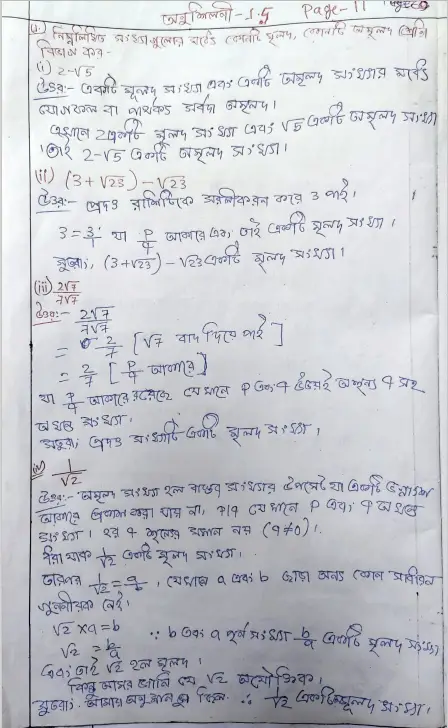 অনুশীলনী - 1.5 Page - 11
1) নিম্নলিখিত সংখ্যাগুলোর মধ্যে কোনটি মূলদ, কোনটি অমূলদ
বিচার কর-
(i) 2-√5
উত্তর:- একটি মূলদ সংখ্যা এবং একটি অমূলদ সংখ্যার মধ্যে
যোগফল বা পার্থক্য সর্বদা অমূলদ।
এখানে 2 একটি মূলদ সংখ্যা এবং √5 একটি অমূলদ সংখ্যা
তাই 2-√5 একটি অমূলদ সংখ্যা।
(ii) (3+√23) - √23
উত্তর:- প্রদত্ত রাশিটিকে সরলীকরণ করে 3 পাই।
3 = 3/1 যা p/q আকারে এবং তাই একটি মূলদ সংখ্যা।
সুতরাং, (3+√23) - √23 একটি মূলদ সংখ্যা।
(iii) 2√7/7√7
উত্তর:- 2√7/7√7
= 2/7 [√7 বাদ দিয়ে পাই]
= 2/7 [p/q আকারে]
যা p/q আকারে রয়েছে যেখানে p এবং q উভয়ই অশূন্য q সহ
অখণ্ড সংখ্যা।
সুতরাং, প্রদত্ত সংখ্যাটি একটি মূলদ সংখ্যা।
iv) 1/√2
উত্তর:- অমূলদ সংখ্যা হল বাস্তব সংখ্যার উপসেট যা একটি ভগ্নাংশ
আকারে প্রকাশ করা যায় না, p/q যেখানে p এবং q অখণ্ড
সংখ্যা। হর q শূন্যের সমান নয় (q≠0)।
ধরা যাক 1/√2 একটি মূলদ সংখ্যা।
তারপর 1/√2 = a/b, যেখানে a এবং b ছাড়া অন্য কোন সাধারণ
গুণনীয়ক নেই।
√2 × a = b
√2 = b/a ∵ b এবং a পূর্ণ সংখ্যা b/a একটি মূলদ সংখ্যা
এবং তাই √2 হল মূলদ।
কিন্তু আমরা জানি যে √2 অযৌক্তিক।
সুতরাং আমার অনুমান ভুল ছিল ∴ 1/√2 একটি অমূলদ সংখ্যা।